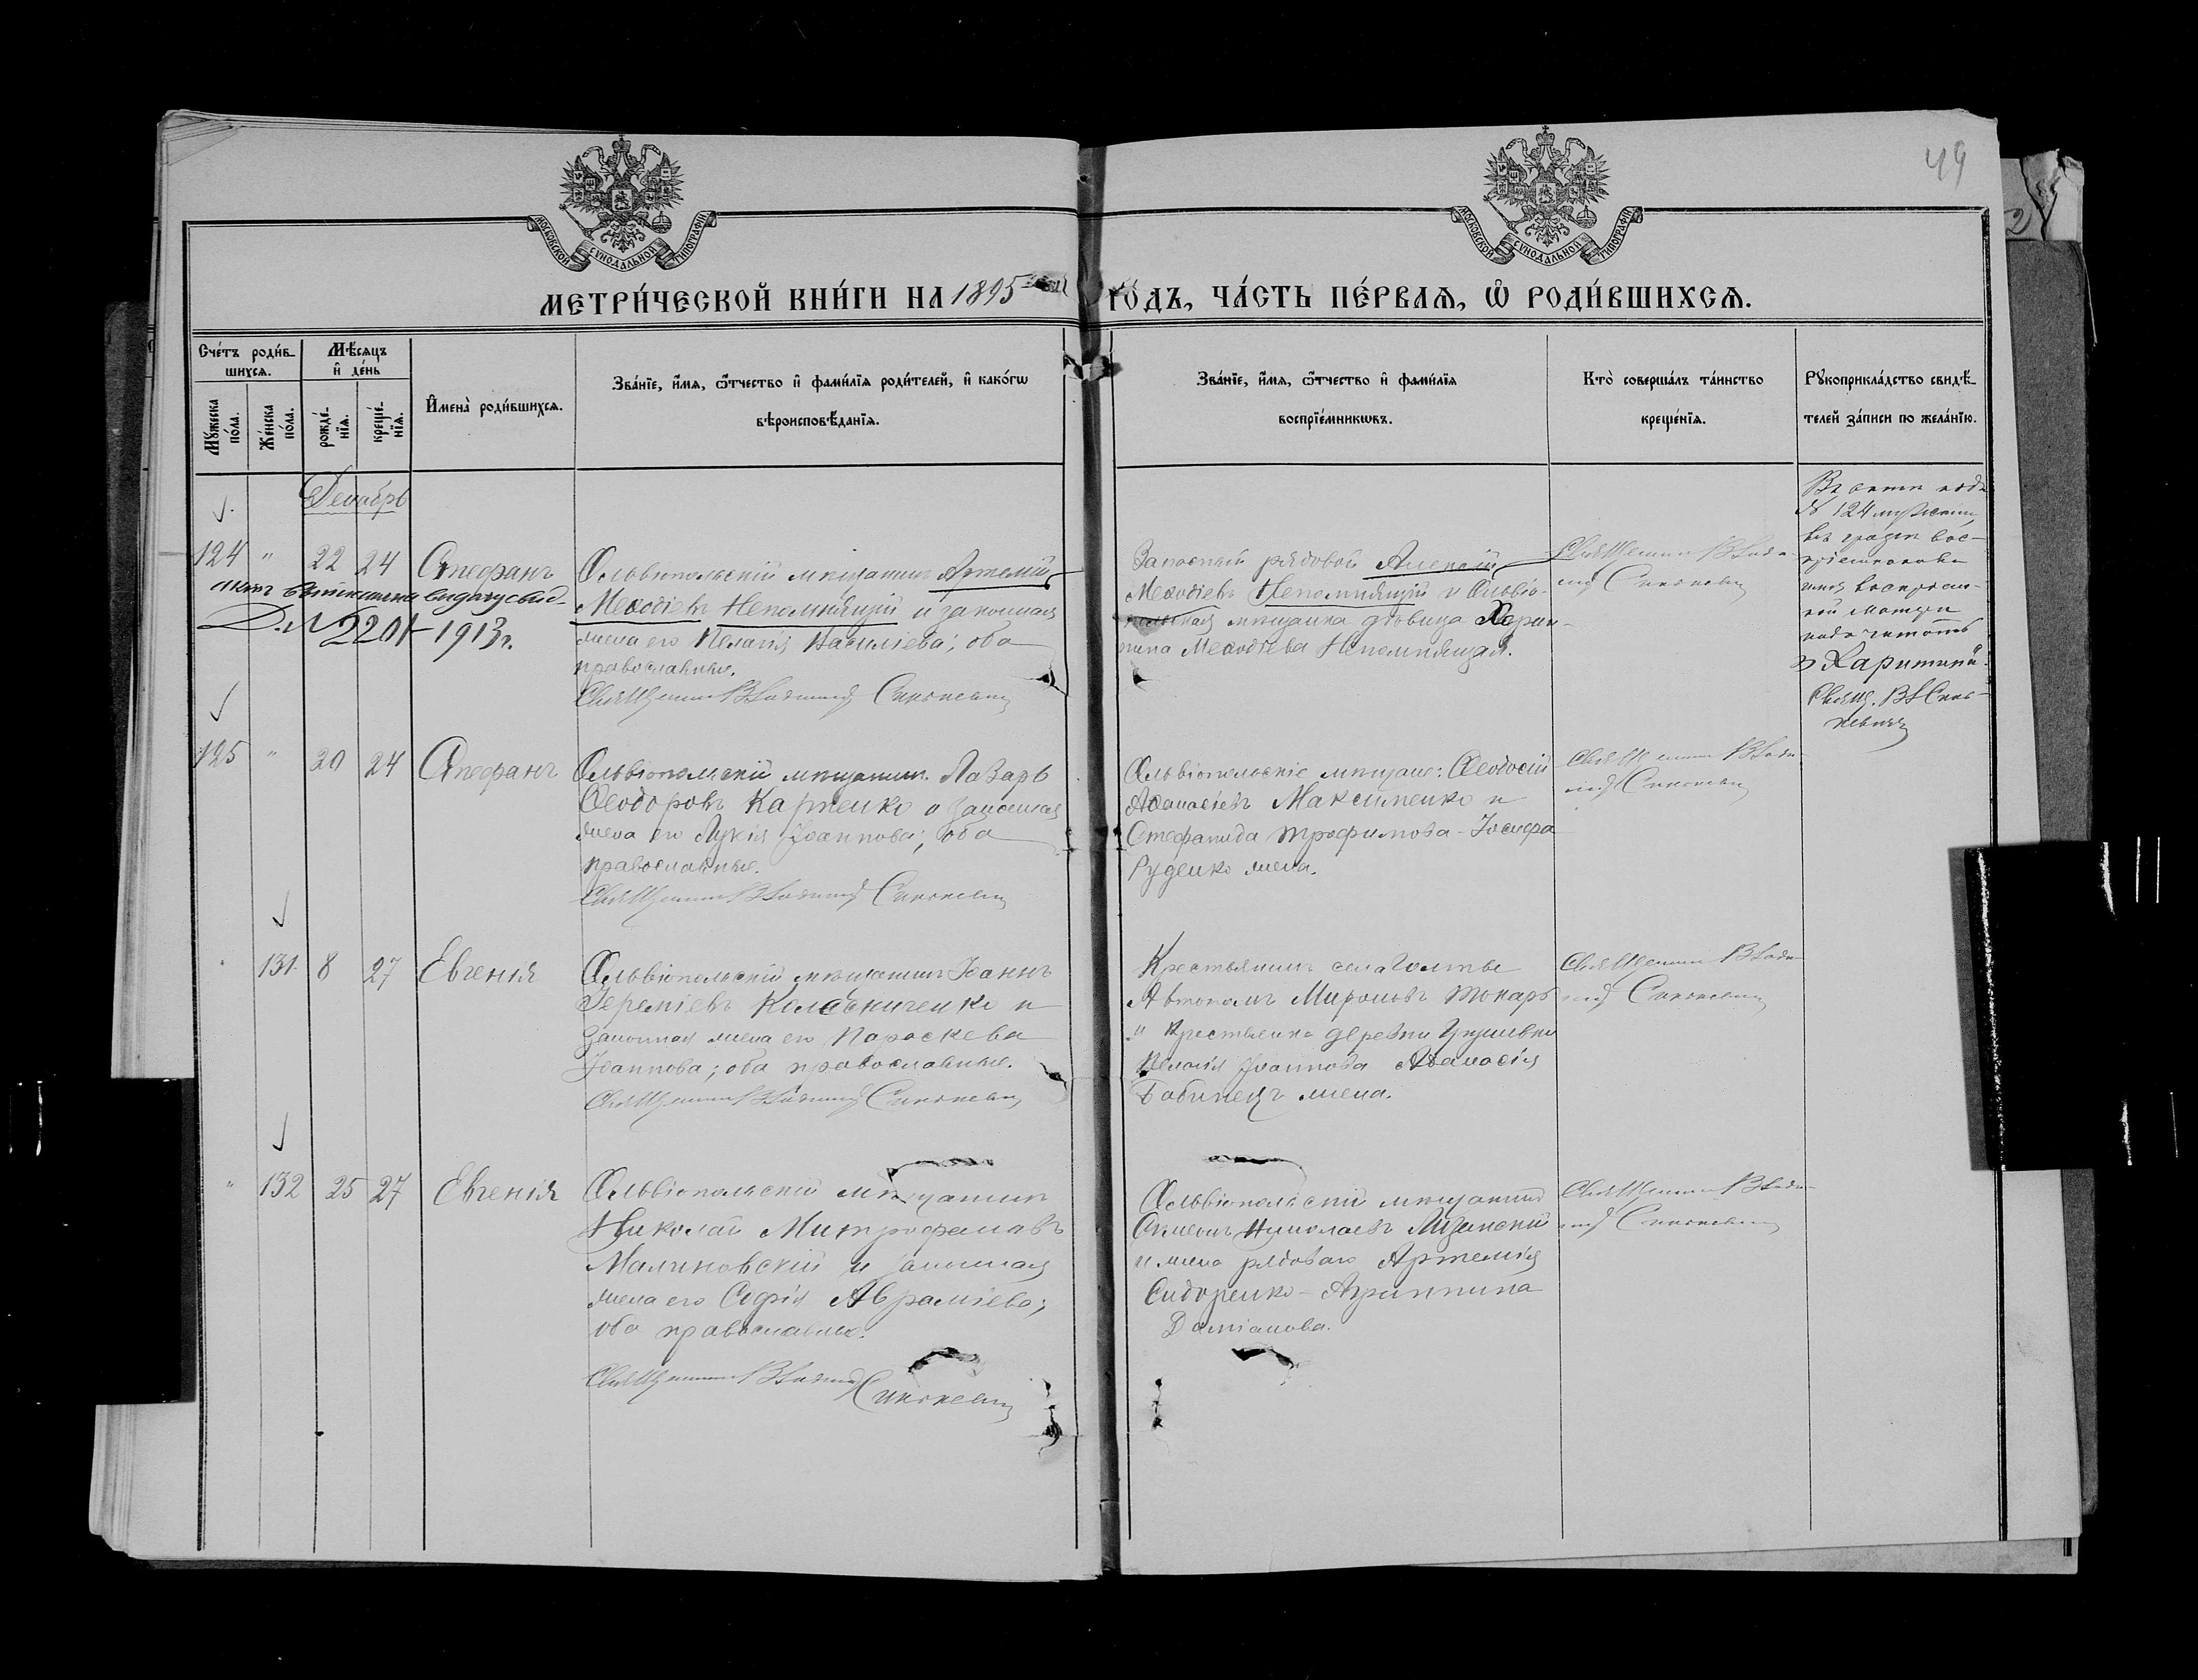 49
МОСКОВСКОЙ СУНОДАЛЬНОЙ ТИПОГРАФІИ
МОСКОВСКОЙ СУНОДАЛЬНОЙ ТИПОГРАФІИ
МЕТРИ́ЧЕСКОЙ КНИ́ГИ НА 1895 ГО́ДЪ, ЧА́СТЬ ПЕ́РВАѦ, Ѽ РОДИ́ВШИХСѦ.
Сче́тъ роди́в-
шихсѧ.
Мꙋ́жеска по́ла.
Же́нска по́ла.
Мѣ́сѧцъ
и҆ де́нь
рожде́-
нїѧ.
креще́-
нїѧ.
И҆мена̀ роди́вшихсѧ.
Зва́нїе, и҆́мѧ, ѻ҆́тчество и҆ фами́лїѧ роди́телей, и҆ како́гѡ
вѣроисповѣ́данїѧ.
Зва́нїе, и҆́мѧ, ѻ҆́тчество и҆ фами́лїѧ
воспрїе́мникѡвъ.
Кто̀ соверша́лъ та́инство
креще́нїѧ.
Рꙋкоприкла́дство свидѣ́-
телей за́писи по жела́нїю.
Декабрь
124 " 22 24 Стефанъ
Ольвіопольскій мѣщанинъ Артемій
Меѳодіевъ Непомнящій и законная
жена его Пелагія Василіева; оба
православные.
Священникъ Владиміръ
Д. № 2201 - 1913 г.
Запасный рядовой Алексій
Меѳодіевъ Непомнящій и Ольвіо-
польская мѣщанка дѣвица Хари-
тина Меѳодіева Непомнящая.
Священникъ Влади-
міръ
Въ актѣ подъ
№ 124 мужскимъ
въ графѣ вос-
пріемниковъ
имя воспріем-
ной матери
надо читать
Харитина.
Свящ. Вл.
125 " 20 24 Стефанъ
Ольвіопольскій мѣщанинъ Лазарь
Ѳеодоровъ Карпенко и законная
жена его Лукія Іоаннова; оба
православные.
Священникъ Владиміръ
Ольвіопольскіе мѣщане: Ѳеодосій
Аѳанасіевъ Максименко и
Стефанида Трофимова - Іосифа
Руденко жена.
Священникъ Влади-
міръ
" 131 8 27 Евгенія
Ольвіопольскій мѣщанинъ Іоаннъ
Іереміевъ Колесниченко и
законная жена его Параскева
Іоаннова; оба православные.
Священникъ Владиміръ
Крестьянинъ села Голты
Автономъ Мироновъ Токарь
и крестьянка деревни
Пелагія Іоаннова Аѳанасія
Бабинецъ жена.
Священникъ Влади-
міръ
" 132 25 27 Евгенія
Ольвіопольскій мѣщанинъ
Николай Митрофановъ
Малиновскій и законная
жена его Софія Авраміева;
оба православные.
Священникъ Владиміръ
Ольвіопольскій мѣщанинъ
Николаевъ
и жена рядоваго Артемія
Сидоренко - Агриппина
Даміанова.
Священникъ Влади-
міръ